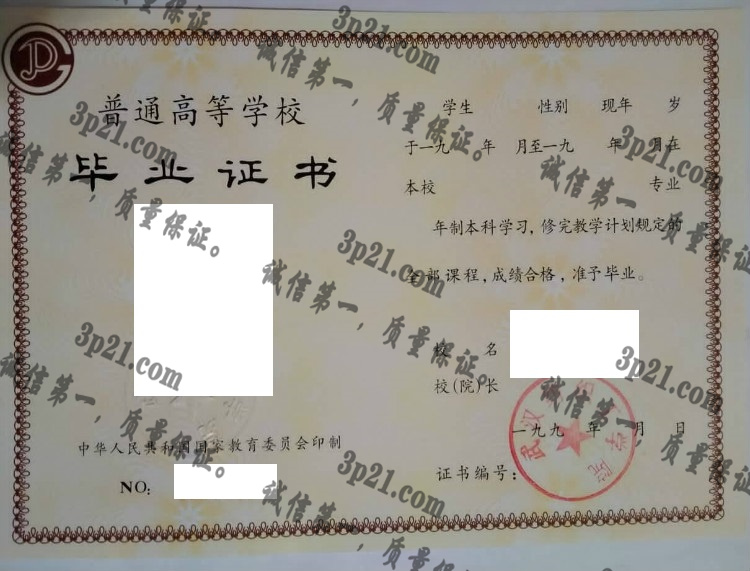 普通高等学校
毕业证书
中华人民共和国国家教育委员会印制
NO:
学生 性别 现年 岁
于一九 年 月至一九 年 月在
本校 专业
年制本科学习，修完教学计划规定的
全部课程，成绩合格，准予毕业。
校 名
校(院)长
一九九 年 月 日
证书编号：
武汉 学院
3p21.com
诚信第一，质量保证。
3p21.com
诚信第一，质量保证。
3p21.com
诚信第一，质量保证。
3p21.com
诚信第一，质量保证。
3p21.com
诚信第一，质量保证。
3p21.com
诚信第一，质量保证。
3p21.com
3p21.com
诚信第一，质量保证。